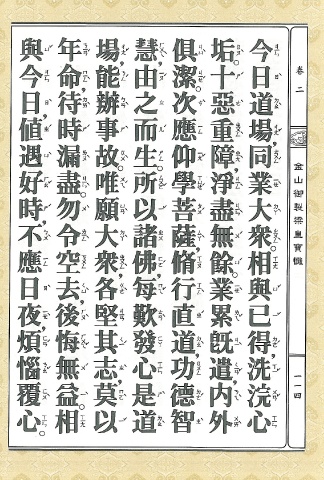 今日道場,同業大衆,相與已得,洗浣心
垢。十惡重障,淨盡無餘。業累旣遣,內外
俱潔。次應仰學菩薩,脩行直道,功德智
慧,由之而生。所以諸佛每歎,發心是道
場,能辦事故。唯願大衆,各堅其志,莫以
年命,待時漏盡。勿令空去,後悔無益。相
與今日値遇好時,不應日夜煩惱覆心。
卷二
金山御製梁皇寶懺
一一四